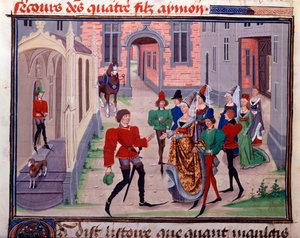 secours des quatre filz aymon.
dist listoire que quant maulgis